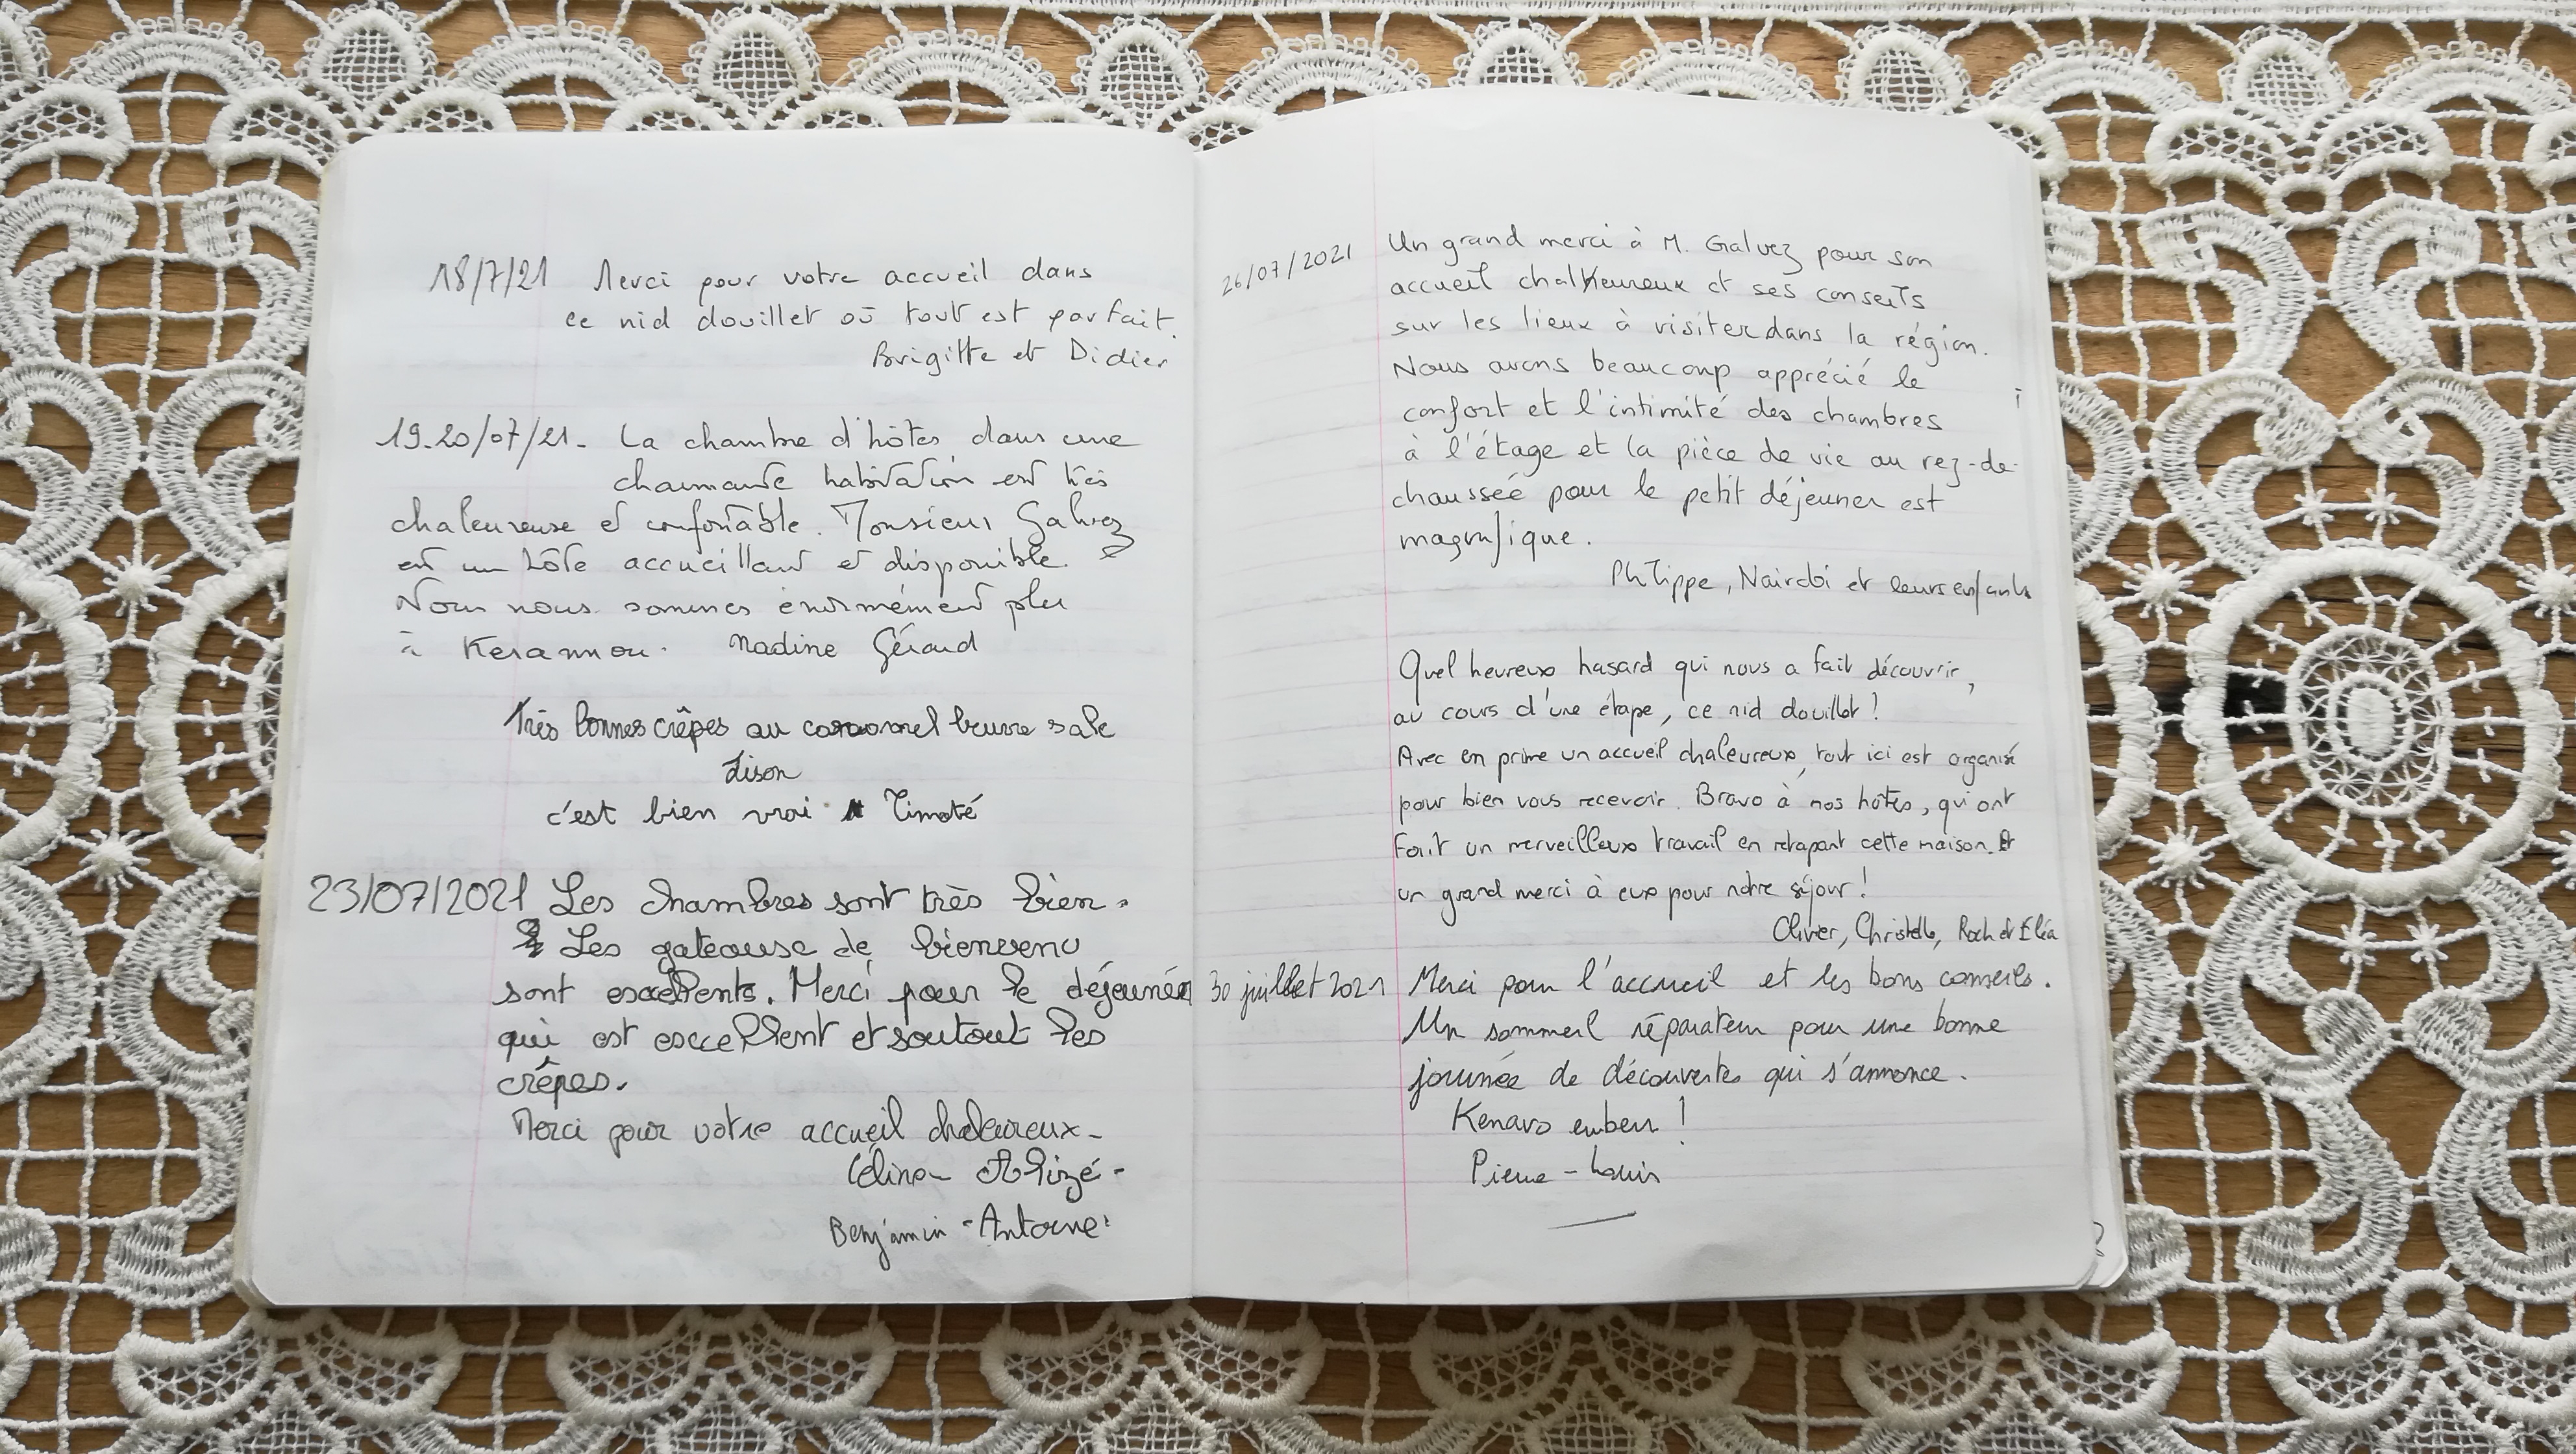 18/7/21 Merci pour votre accueil dans
ce nid douillet où tout est parfait.
Brigitte et Didier
19.20/07/21 - La chambre d'hôtes dans une
charmante habitation est très
chaleureuse et confortable. Monsieur Galvez
est un hôte accueillant et disponible.
Nous nous sommes énormément plu
à Kerannou. Nadine Gérard
Très bonnes crêpes au caramel beurre sale
Lison
c'est bien vrai Timoté
23/07/2021 Les chambres sont très bien.
Les gateause de bienvenu
sont excellents. Merci pour le déjeunée
qui est excellent et soutout les
crêpes.
Merci pour votre accueil chaleureux -
Céline - Alizé -
Benjamin - Antoine
26/07/2021 Un grand merci à M. Galvez pour son
accueil chalheureux et ses conseils
sur les lieux à visiter dans la région.
Nous avons beaucoup apprécié le
confort et l'intimité des chambres
à l'étage et la pièce de vie au rez-de-
chaussée pour le petit déjeuner est
magnifique.
Philippe, Nairobi et leurs enfants
Quel heureux hasard qui nous a fait découvrir,
au cours d'une étape, ce nid douillet !
Avec en prime un accueil chaleureux, tout ici est organisé
pour bien vous recevoir. Bravo à nos hôtes, qui ont
fait un merveilleux travail en retapant cette maison. Et
un grand merci à eux pour notre séjour !
Olivier, Christelle, Roch et Eléa
30 juillet 2021 Merci pour l'accueil et les bons conseils.
Un sommeil réparateur pour une bonne
journée de découvertes qui s'annonce.
Kenavo enben !
Pierre - Louis